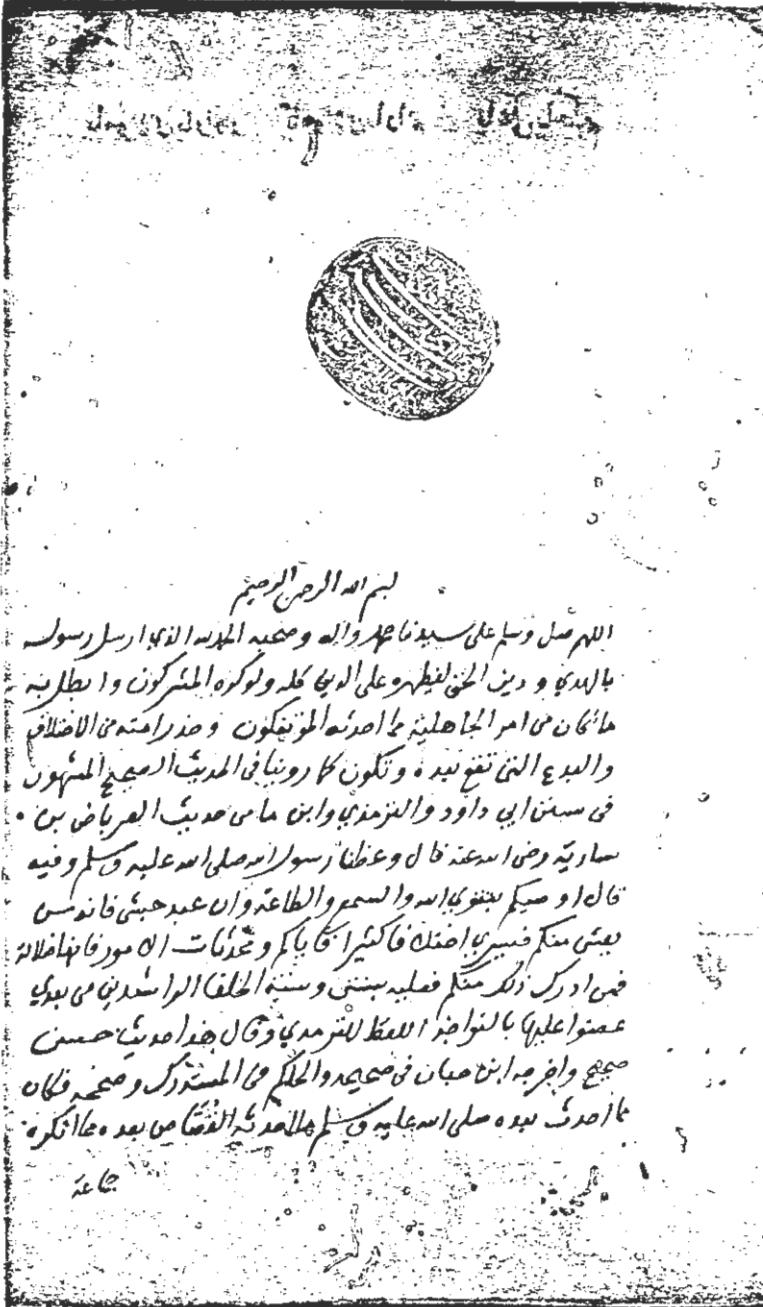 بسم الله الرحمن الرحيم
اللهم صل وسلم على سيدنا محمد واله وصحبه الحمد لله الذي ارسل رسوله
بالهدي ودين الحق ليظهره على الدين كله ولوكره المشركون وابطل به
ما كان من امر الجاهلية مما احدثه المؤتفكون وحذر امته من الاختلاف
والبدع التي تقع بعده وتكون كما روينا في الحديث الصحيح المشهور
في سنن ابي داود والترمذي وابن ما من حديث العرباض بن
سارية رضي الله عنه قال وعظنا رسول الله صلى الله عليه وسلم وفيه
قال اوصيكم بتقوي الله والسمع والطاعة وان عبد حبشي فانه من
يعش منكم فسيري اختلافا كثيرا واياكم ومحدثات الامور فانها ضلالة
فمن ادرك ذلك منكم فعليه بسنتي وسنة الخلفا الراشدين من بعدي
عضوا عليها بالنواجذ اللفظ للترمذي وقال هذا حديث حسن
صحيح واخرجه ابن حبان في صحيحه والحاكم في المستدرك وصححه فكان
مما احدث بعده صلى الله عليه وسلم القصاص بعده مما انكره
جماعة